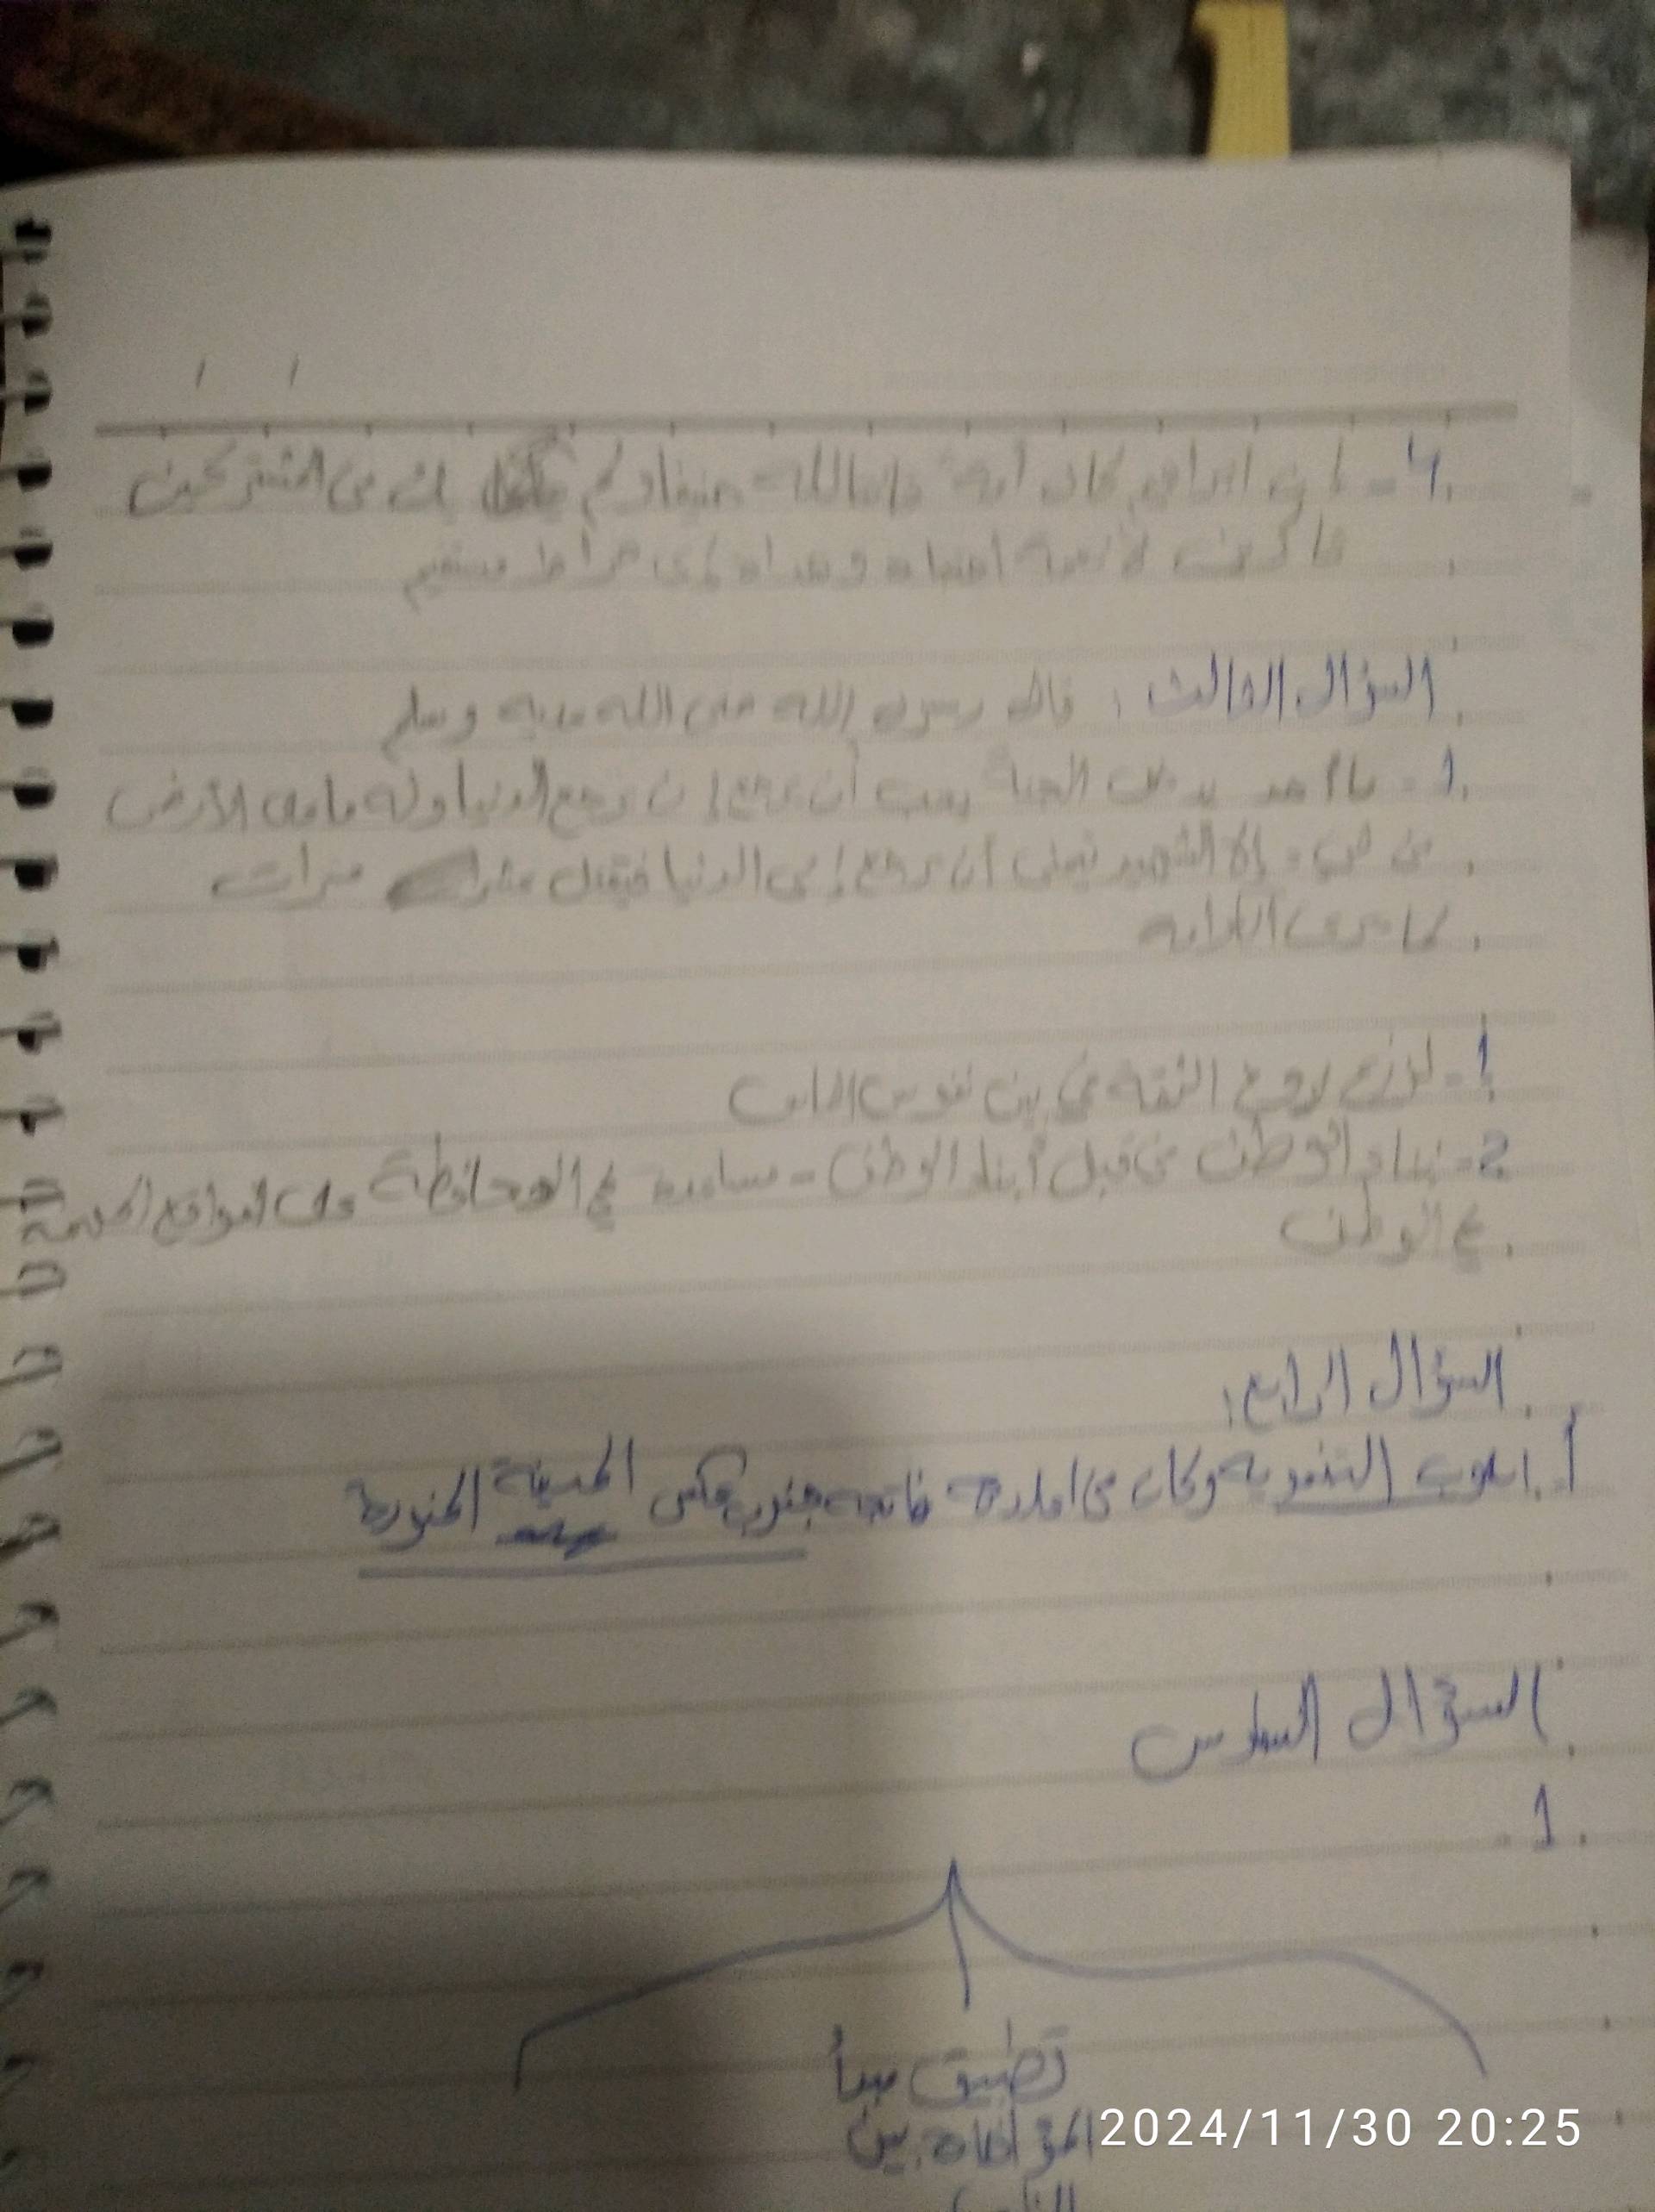 4- إن ابراهيم كان أمة قانتا لله حنيفا ولم يك من المشركين
شاكرا لأنعمه اجتباه وهداه إلى صراط مستقيم
السؤال الثالث : قال رسول الله صلى الله عليه وسلم
1- ما أحد يدخل الجنة يحب أن يرجع إلى الدنيا وله ما على الأرض
من شيء إلا الشهيد يتمنى أن يرجع إلى الدنيا فيقتل عشر مرات
لما يرى الكرامة
1- لزرع روح الثقة في بين نفوس الناس
2- بناء الوطن من قبل أبناء الوطن - مساهمة في المحافظة على
في الوطن
السؤال الرابع:
أ. اسلوب التمويه وكان من فاتجه جنوب عكس المدينة المنورة
السؤال السادس
1
تطبيق مبدأ
المؤاخاة بين
2024/11/30 20:25